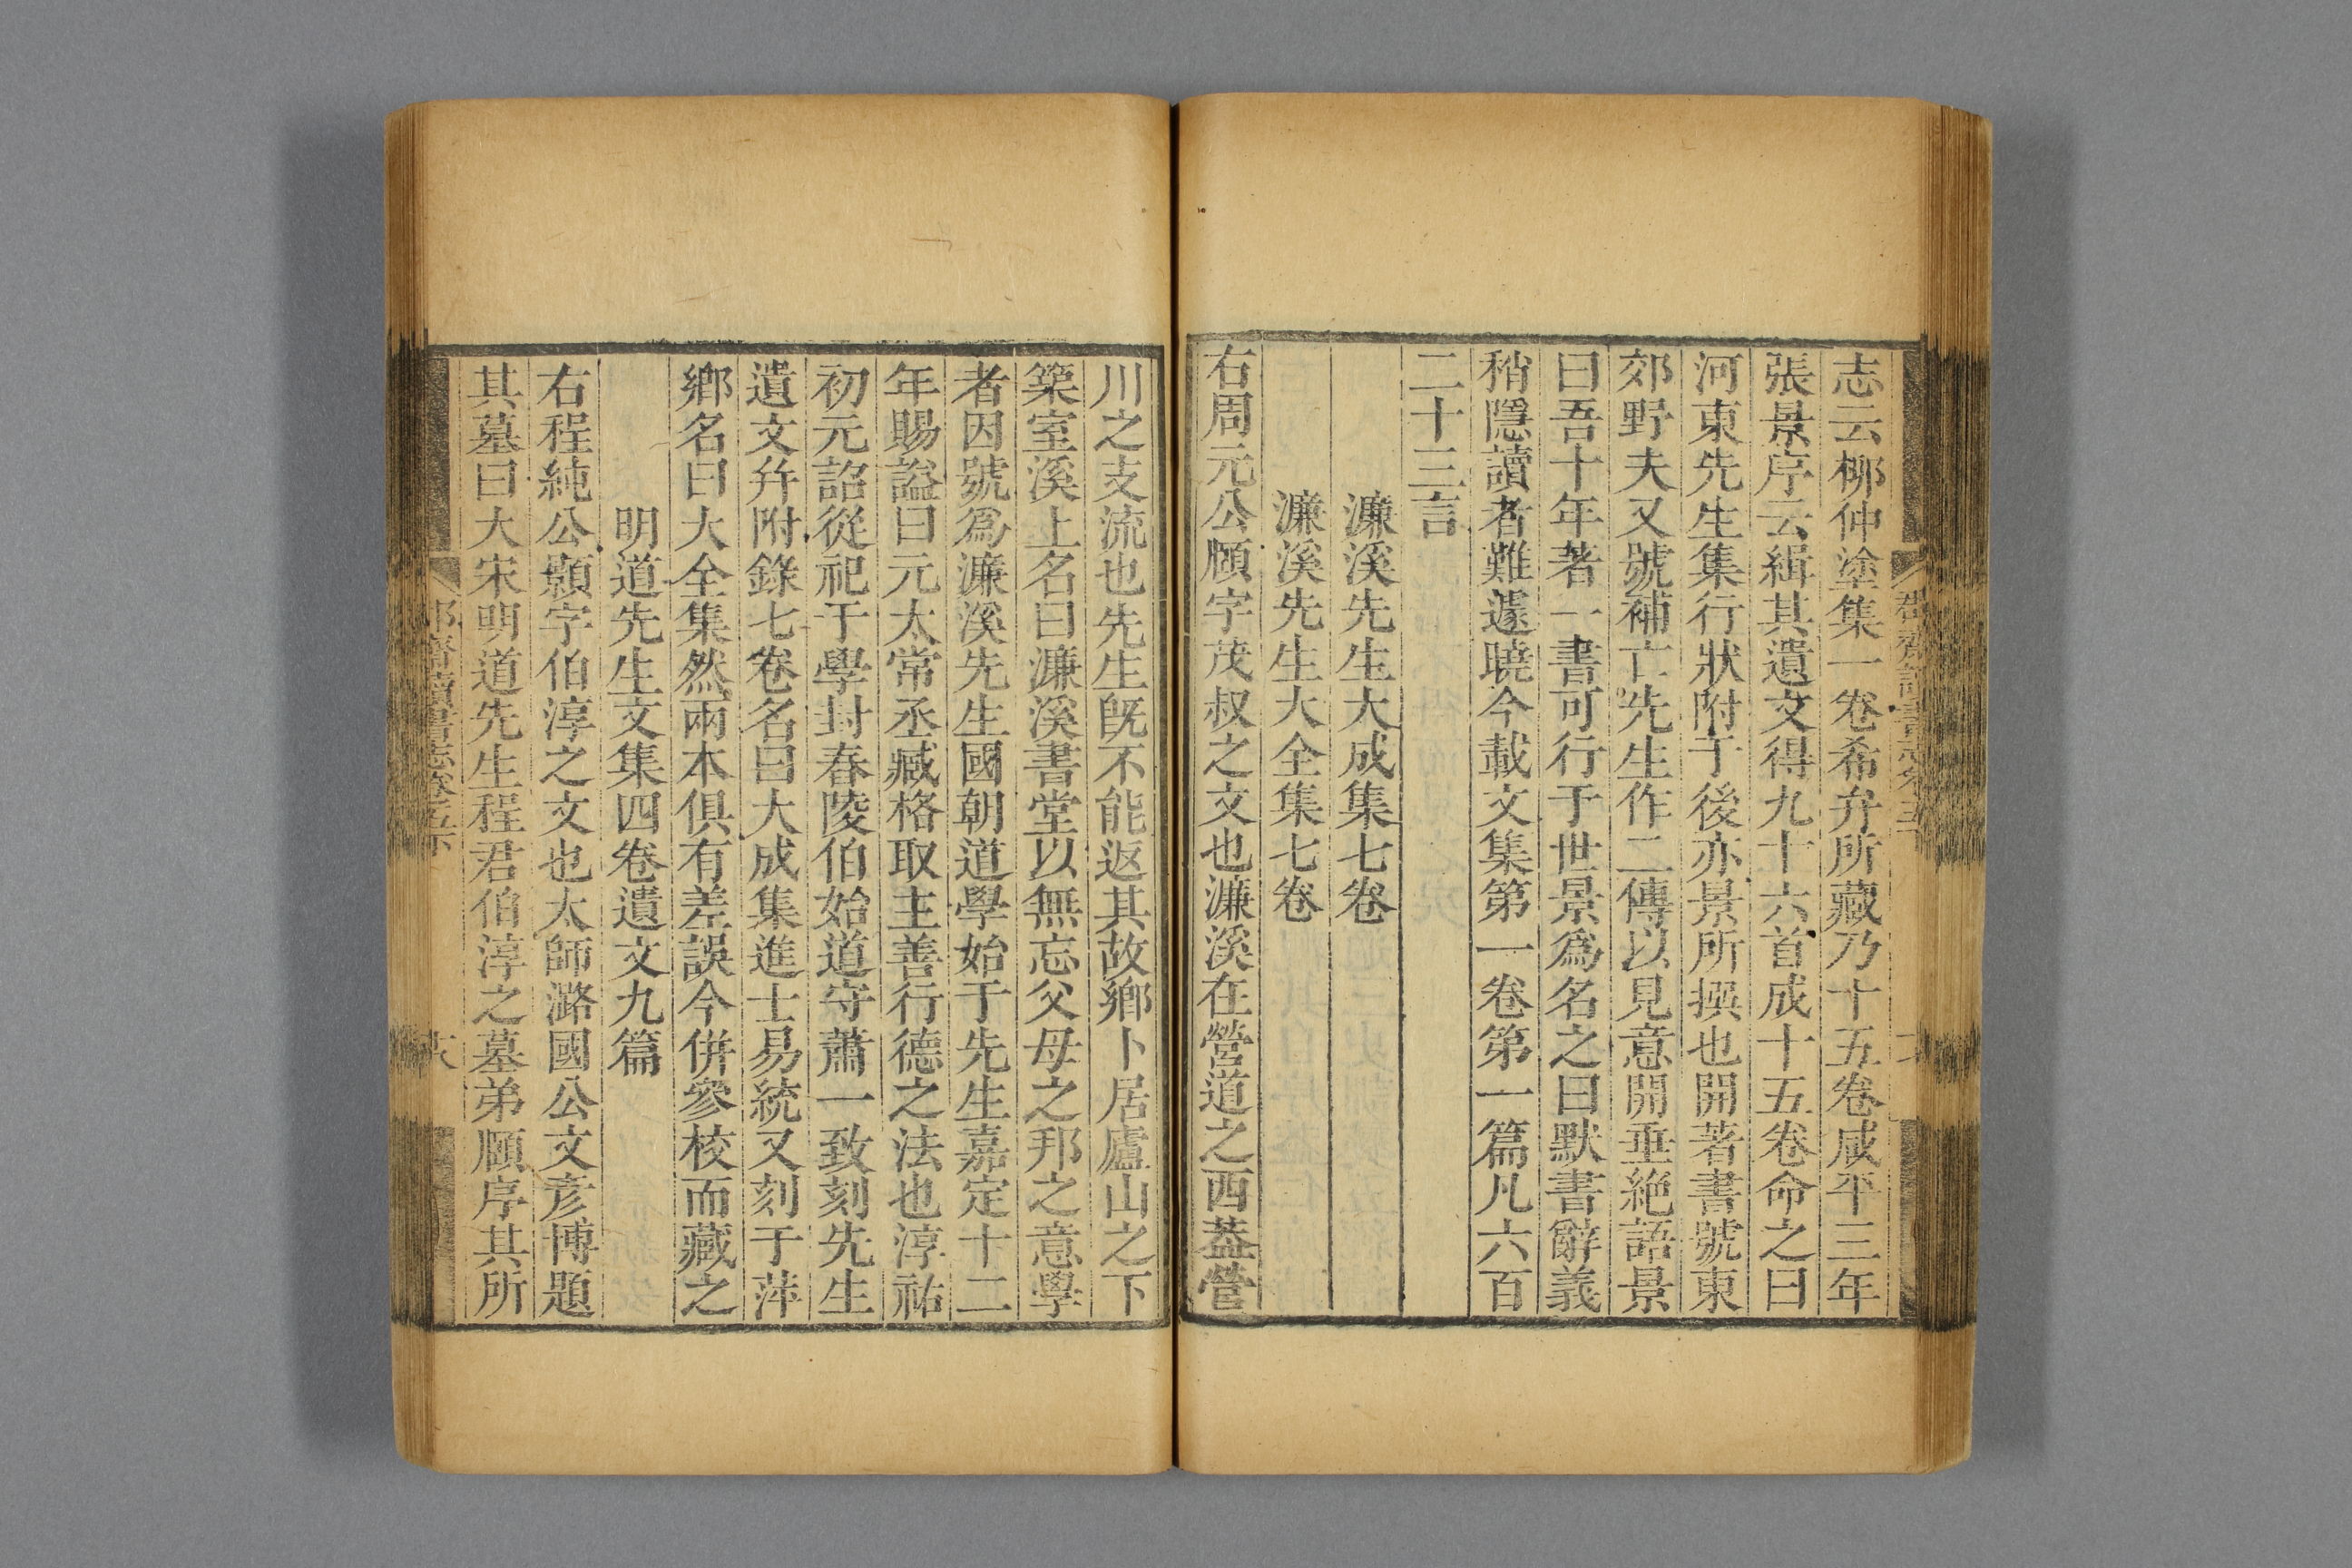 志云柳仲塗集一卷希弁所藏乃十五卷咸平三年
張景序云緝其遺文得九十六首成十五卷命之曰
河東先生集行狀附于後亦景所撰也開著書號東
郊野夫又號補亡先生作二傳以見意開垂絕語景
曰吾十年著一書可行于世景爲名之曰默書辭義
稍隱讀者難遽曉今載文集第一卷第一篇凡六百
二十三言
濂溪先生大成集七卷
濂溪先生大全集七卷
右周元公頤字茂叔之文也濂溪在營道之西葢營
川之支流也先生旣不能返其故鄉卜居廬山之下
築室溪上名曰濂溪書堂以無忘父母之邦之意學
者因號爲濂溪先生國朝道學始于先生嘉定十二
年賜謚曰元太常丞臧格取主善行德之法也淳祐
初元詔從祀于學封舂陵伯始道守蕭一致刻先生
遺文幷附錄七卷名曰大成集進士易統又刻于萍
鄉名曰大全集然兩本俱有差誤今併參校而藏之
明道先生文集四卷遺文九篇
右程純公顥字伯淳之文也太師潞國公文彥博題
其墓曰大宋明道先生程君伯淳之墓弟頤序其所